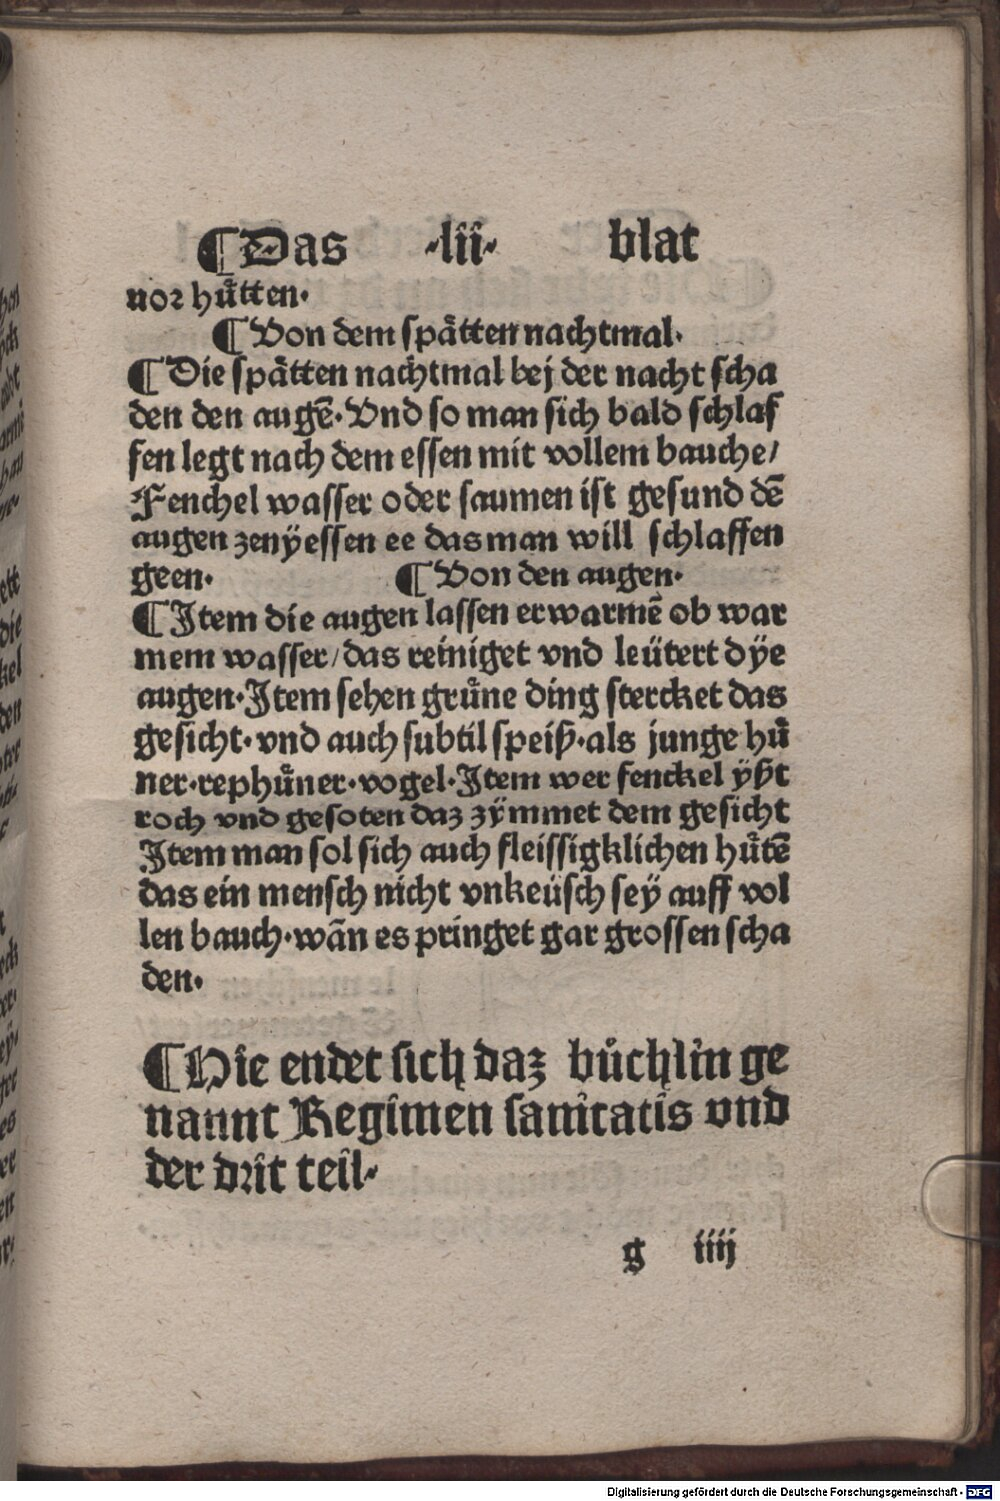 ¶Das ·lii· blat
vor huͤtten·
¶Von dem spaͤtten nachtmal·
¶Die spaͤtten nachtmal bej der nacht scha
den den augē·Vnd so man sich bald schlaf
fen legt nach dem essen mit vollem bauche/
Fenchel wasser oder saumen ist gesund dē
augen zenÿessen ee das man will schlaffen
geen· ¶Von den augen·
¶Jtem die augen lassen erwarmē ob war
mem wasser/das reiniget vnd leütert dÿe
augen·Jtem sehen gruͤne ding stercket das
gesicht·vnd auch subtil speiß·als junge huͤ
ner·rephuͤner·vogel·Jtem wer fenckel ÿßt
roch vnd gesoten daz zÿmmet dem gesicht
Jtem man sol sich auch fleissigklichen huͤtē
das ein mensch nicht vnkeüsch seÿ auff vol
len bauch·wān es pringet gar grossen scha
den·
¶Hie endet sich daz buͤchlin ge
nannt Regimen sanitatis vnd
der drit teil·
g iiij
Digitalisierung gefördert durch die Deutsche Forschungsgemeinschaft - DFG